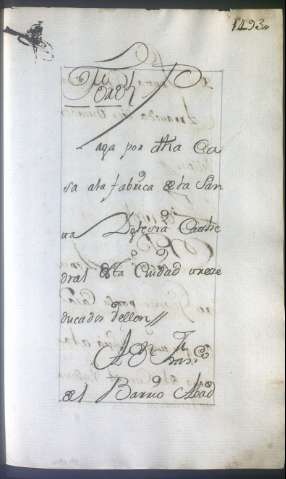 1493
Paga por dha Ca
sa ala fabrica de la San
ta Yglesia Cathe
dral desta Ciudad onze
ducados Vellon //
A D.n Fran.co
del Barrio Abad